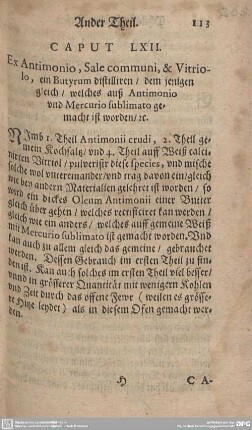 Ander Theil. 113
CAPUT LXII.
Ex Antimonio, Sale communi, & Vitrio-
lo, ein Butyrum distilliren / dem jenigen
gleich / welches auß Antimonio
vnd Mercurio sublimato ge-
macht ist worden/ec.
NImb 1. Theil Antimonii crudi, 2. Theil ge-
mein Kochsaltz/ vnd 4. Theil auff Weiß calci-
nirten Vitriol / pulverisir diese species, vnd mische
solche wol vntereinander/vnd trag davon ein/gleich
wie bey andern Materialien gelehret ist worden / so
wird ein dickes Oleum Antimonii einer Butter
gleich über gehen / welches rectificiret kan werden /
gleich wie ein anders / welches auff gemeine Weiß
mit Mercurio sublimato ist gemacht worden. Vnd
kan auch zu allem gleich das gemeine / gebrauchet
werden. Dessen Gebrauch im ersten Theil zu fin-
den ist. Kan auch solches im ersten Theil viel besser/
vnd in grösserer Quantität mit wenigern Kohlen
vnd Zeit durch das offene Fewr ( weilen es grösse-
re Hitze leydet ) als in diesem Ofen gemacht wer-
den.
H CA-